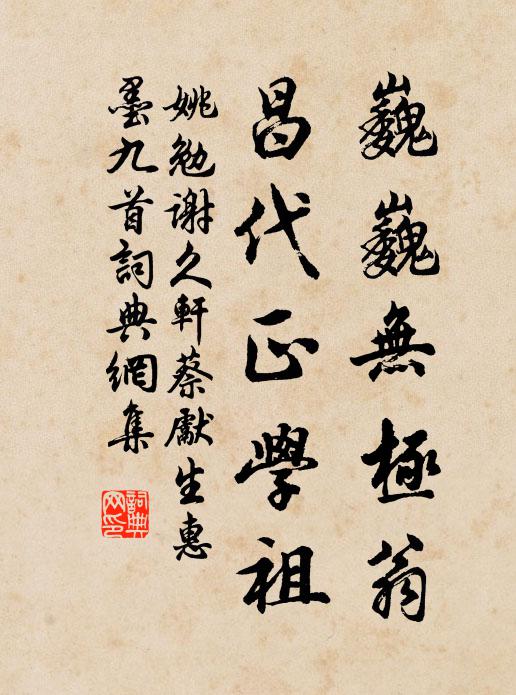 巍巍無極翁
昌代正學祖
姚勉謝久軒蔡獻生惠
墨九首詞典網集
詞典
网印